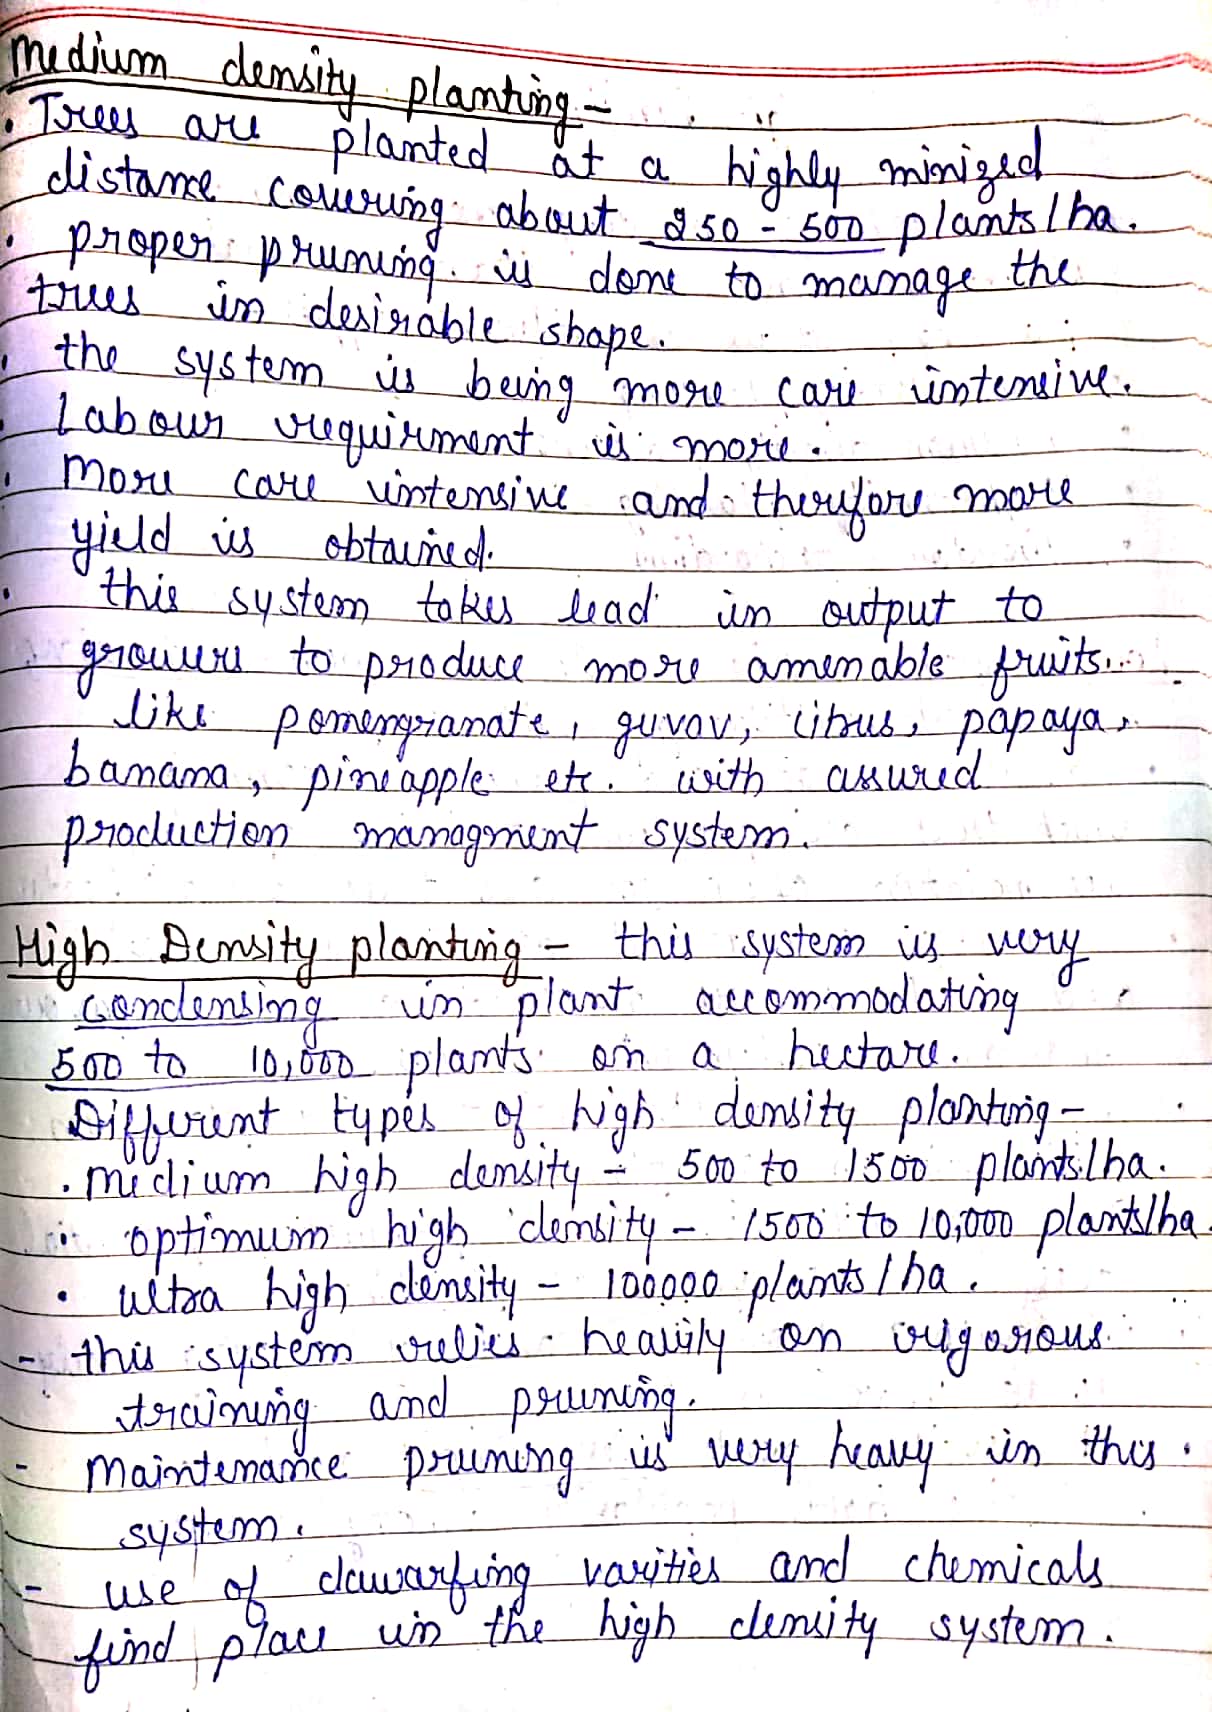 Medium density planting -
• Trees are planted at a highly minized
distance covering about 250 - 500 plants/ha.
• proper pruning is done to manage the
trees in desirable shape.
• the system is being more care intensive.
• Labour requirment is more.
• More care intensive and therefore more
yield is obtained.
• this system takes lead in output to
growers to produce more amenable fruits
like pomengranate, guvav, citrus, papaya,
banana, pineapple etc. with assured
production managment system.
High Density planting - this system is very
condensing in plant accommodating
500 to 10,000 plants on a hectare.
Different types of high density planting -
• medium high density - 500 to 1500 plants/ha.
• optimum high density - 1500 to 10,000 plants/ha.
• ultra high density - 100000 plants/ha.
- this system relies heavily on vigorous
training and pruning.
- Maintenance pruning is very heavy in this
system.
- use of dawarfing varities and chemicals
find place in the high density system.